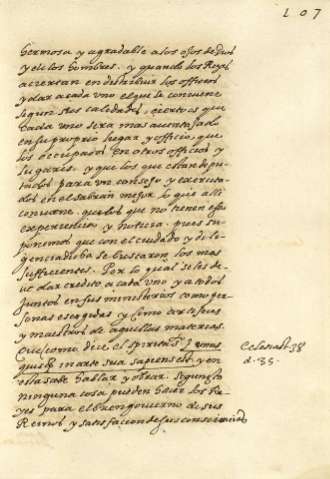 107
hermosa y agradable a los ojos de Dios
y de los hombres. y quando los Reyes
aciertan en distribuir los officios
y dar a cada uno el que le conviene
segun sus calidades, cierto es que
cada uno sera mas aventajado
en su proprio lugar y officio, que
los occupados en otros officios y
lugares. y que los que estan depu-
tados para un consejo y exercita-
dos en el sabran mejor lo que alli
conviene. que los que no tienen essa
experiencia y noticia. pues su-
ponemos que con el cuidado y dili-
gencia de buscaron los mas
sufficientes. Por lo qual se les de-
ve dar credito a cada uno y a todos
juntos en sus ministerios como per-
sonas escogidas y como
y maestros de aquellas materias.
Que como dice el spiritu S.
in arte sua sapiens est. y en
ella sabe hablar y obrar. segun esto
ninguna cosa pueden hacer los Re-
yes para el buen govierno de sus
Reinos y satisfacion de sus conscienc
38
d. 35.